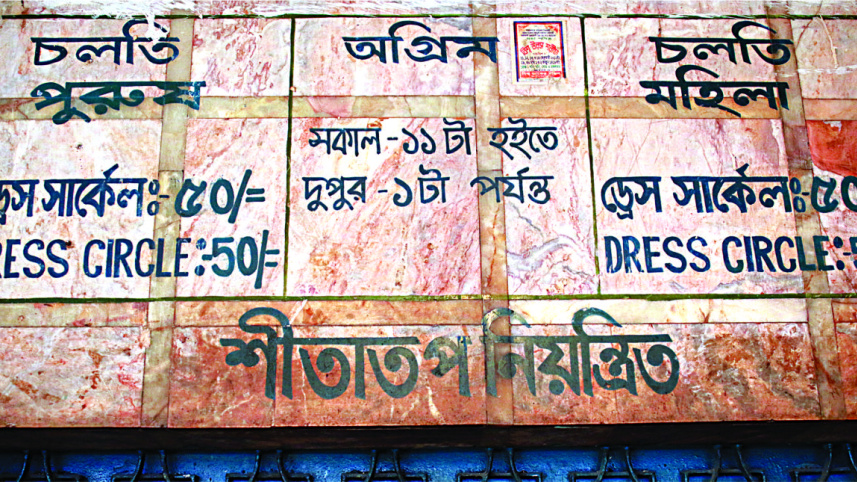 চলতি
পুরুষ
ড্রেস সার্কেল:-৫০/=
DRESS CIRCLE:-50/=
অগ্রিম
সকাল - ১১ টা হইতে
দুপুর - ১টা পর্যন্ত
চলতি
মহিলা
ড্রেস সার্কেল:-৫০
DRESS CIRCLE:-
শীতাতপ নিয়ন্ত্রিত